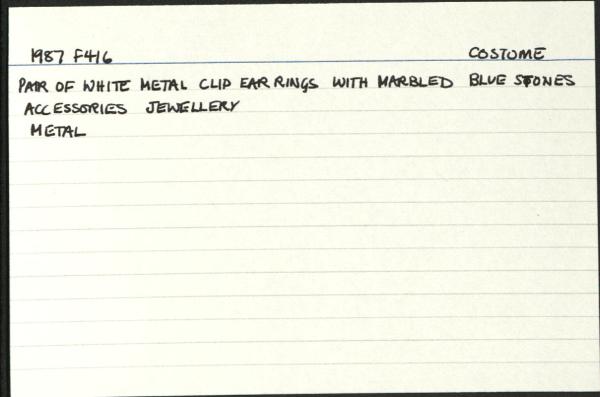 1987 F416 COSTUME
PAIR OF WHITE METAL CLIP EARRINGS WITH MARBLED BLUE STONES
ACCESSORIES JEWELLERY
METAL